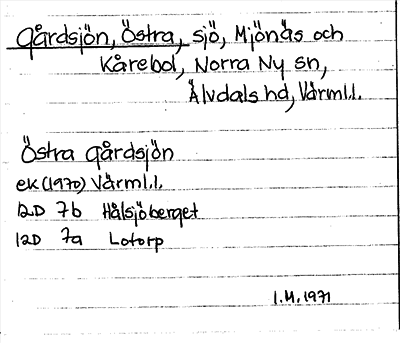 Gårdsjön, Östra, sjö, Mjönäs och
Kårebol, Norra Ny sn,
Älvdals hd, Värml.l.
Östra Gårdsjön
ek (1970) Värml.l.
12D 7b Hålsjöberget
12D 7a Loforp
1.M.1971